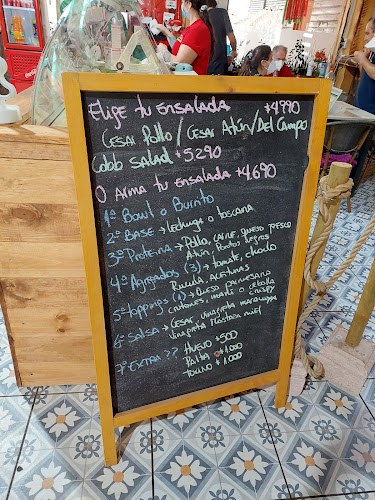 Elige tu Ensalada $4990
Cesar Pollo / Cesar Atún / Del Campo
Cobb Salad $5290
o Arma tu Ensalada $4.690
1º Bowl o Burrito
2º Base → Lechuga o toscana
3º Proteína → Pollo, carne, queso fresco
Atún, Porotos negros
4º Agregados (3) → tomate, choclo
Rucula, Aceitunas
5º toppings (1) → Queso parmesano
crutones, maní o cebolla
crispy
6º Salsa → Cesar, vinagreta maracuyá
Vinagreta Mostaza miel
7º Extra ??
Huevo $500
Palta $1000
Tocino $1.000